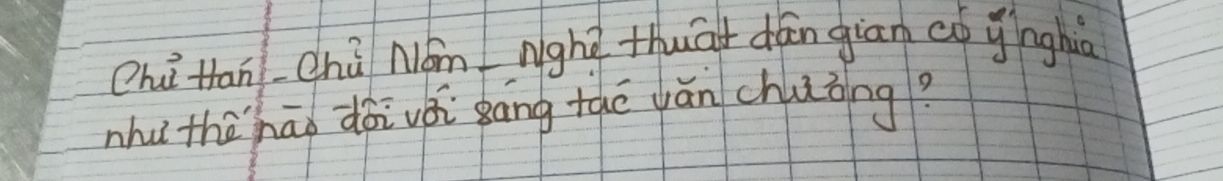 Chữ Hán - Chữ Nôm - Nghệ thuật dân gian có ý nghĩa
như thế nào đối với sáng tác văn chương?